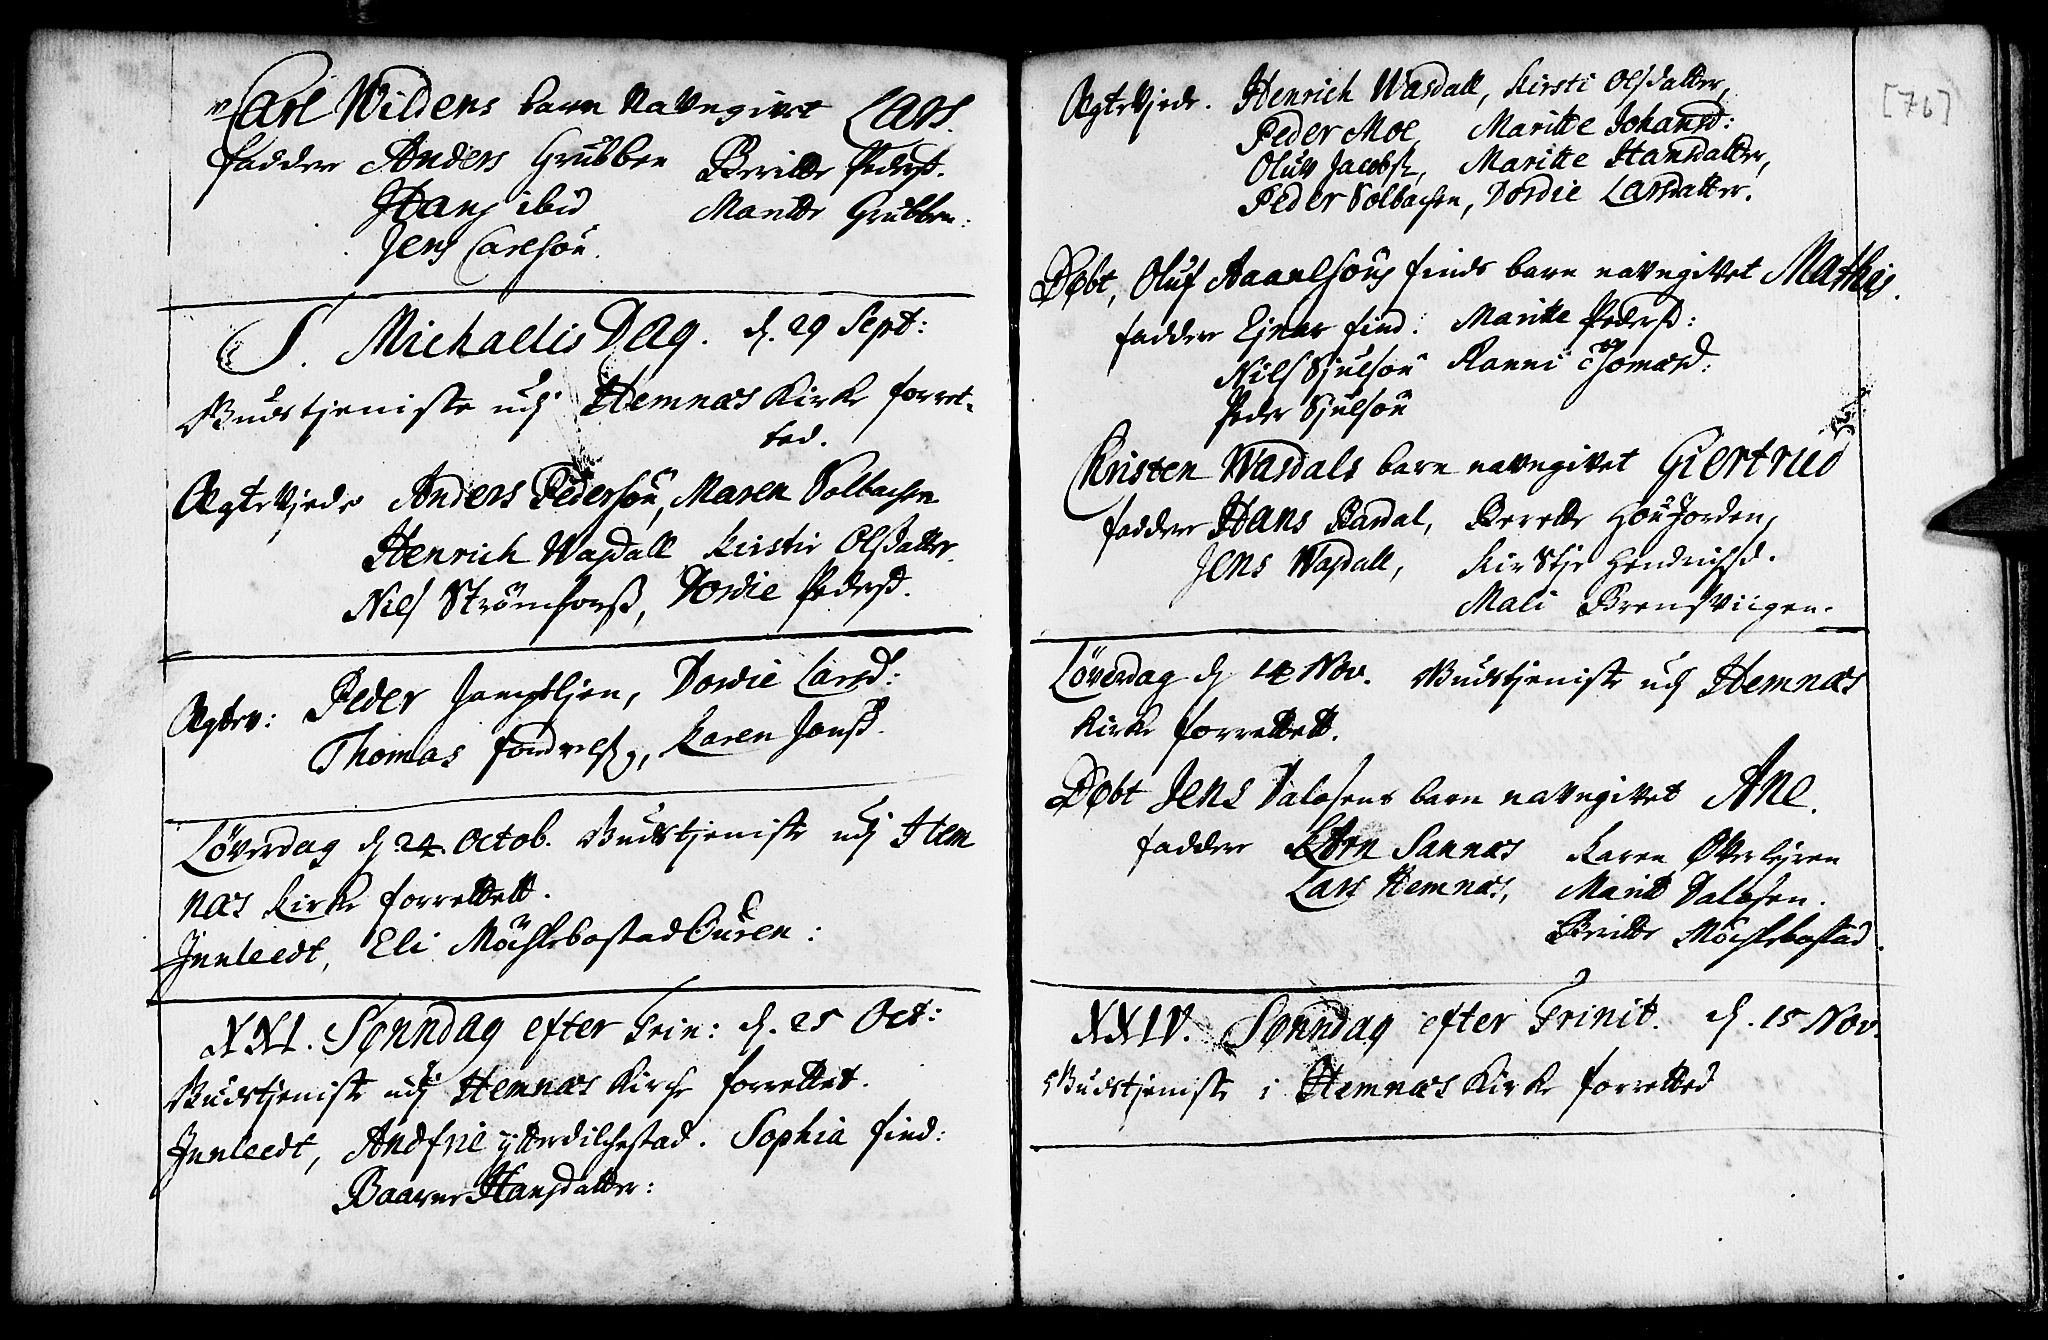 Carl Wildens barn Navngivet Lars.
fadder Anders Grubben Beritte Peders.
Hans ibid Maritte Grubben.
Jens Carlsøn.
S. Michaelis Dag. d. 29 Sept:
Gudstjeniste udj Hemnæs Kirke forret-
ted.
Ægtevjede Anders Pedersøn, Maren Solbachen
Henrich Wasdall Kirstie Olsdatter.
Nils Strømfors, Dordie Pedersd.
Ægtev: Peder, Dordie Larsd:
Thomas, Karen Jonsd.
Løverdag d. 24. Octob. Gudstjeniste udj Hem
næs Kirke forrettett.
Innleedt, Eli Møchlebostad Ouren:
XXI. Sønndag efter Trin: d. 25 Oct:
Gudstjeniste udj Hemnæs Kirche forrettet.
Innleedt, Andfrie ytterdilchestad. Sophia find:
Baarne Hansdatter:
[76]
Ægtevjede. Henrich Wasdall, Kirsti Olsdatter,
Peder Moe, Maritte Johansd:
Oluv Jacobs., Maritte Hansdatter,
Peder Solbachen, Dordie Larsdatter.
Døbt, Oluf Aaarelsøns finds barn navngivet Mathis.
fadder Ejner find. Maritte Pedersd:
Nils Sjulsøn Ranni Thomæsd:
Peder Sjulsøn
Christen Wasdals barn navngivet Giertrud
fadder Hans Randal, Berette Houjorden,
Jens Wasdall, Kirstje Hendrichsd.
Mali Brensviigen.
Løverdag d. 14 Nov. Gudstjeniste udj Hemnæs
Kirke forrettett.
Døbt Jens Dalosens barn navngivet Ane.
fadder Sannæs Karen Øverlejren
Lars Hemnæs, Maritt Dalosen.
Beritte Møchlebostad.
XXIV. Sønndag efter Trinit. d. 15 Nov.
Gudstjeniste i Hemnæs Kirke forretted